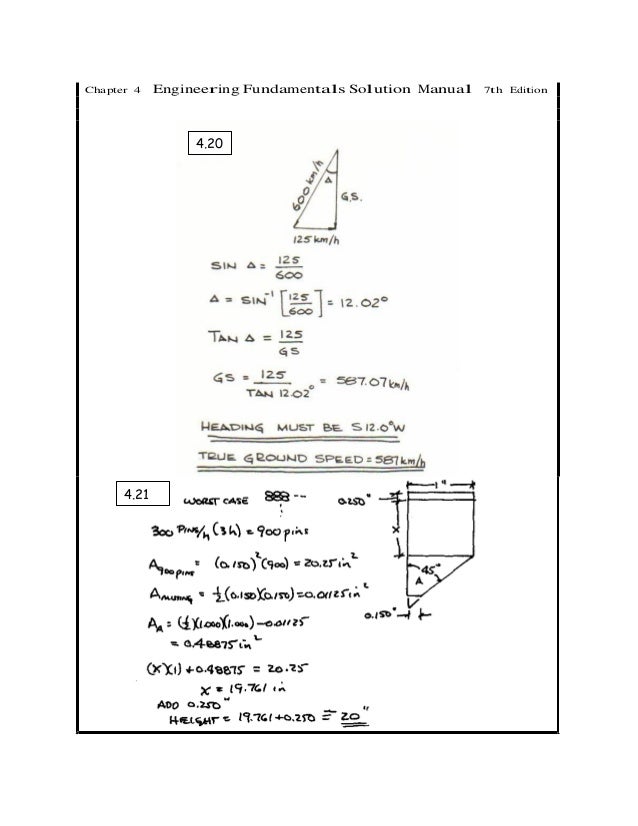 Chapter 4 Engineering Fundamentals Solution Manual 7th Edition
4.20
600 km/h
Δ
G.S.
125 km/h
SIN Δ = 125/600
Δ = SIN⁻¹ [125/600] = 12.02°
TAN Δ = 125/GS
GS = 125/TAN 12.02° = 587.07 km/h
HEADING MUST BE S 12.0°W
TRUE GROUND SPEED = 587 km/h
4.21
WORST CASE 888 --
300 PINS/h (3h) = 900 pins
A900pins = (0.150)²(900) = 20.25 in²
= ½(0.150)(0.150) = 0.01125 in²
A_A = (½)(1.000)(1.000) - 0.01125
= 0.48875 in²
(X)(1) + 0.48875 = 20.25
X = 19.761 in
ADD 0.250"
HEIGHT = 19.761 + 0.250 = 20"
1"
0.250"
X
45°
A
0.150"